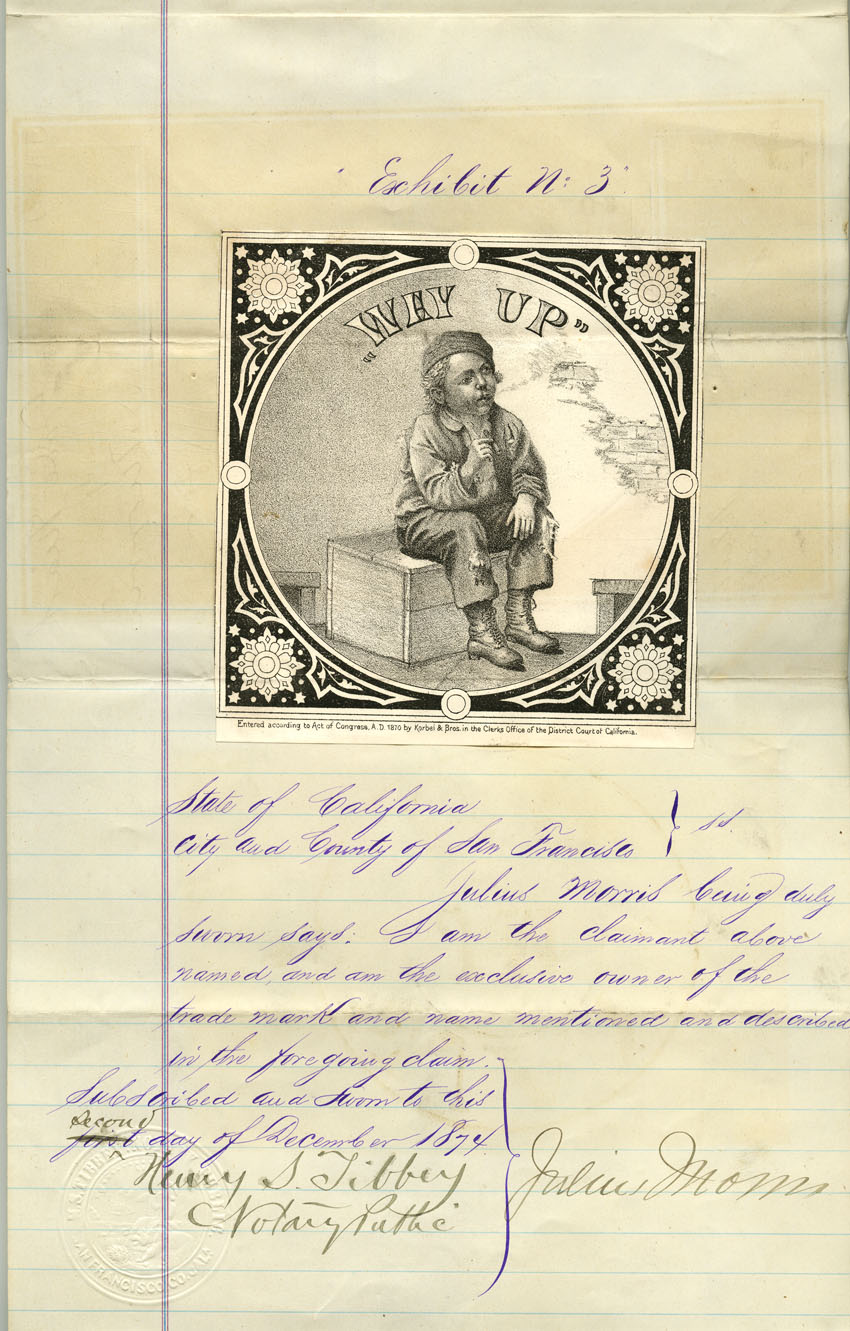 "Exhibit No: 3"
"WAY UP"
Entered according to Act of Congress, A.D. 1870 by Korbel & Bros. in the Clerks Office of the District Court of California.
State of California } ss.
City and County of San Francisco
Julius Morris being duly
sworn says: I am the claimant above
named, and am the exclusive owner of the
trade mark and name mentioned and described
in the foregoing claim.
Subscribed and sworn to this
second
first day of December 1874.
Henry S. Tibbey
Notary Public
Julius Morris
SAN FRANCISCO CO. CAL.